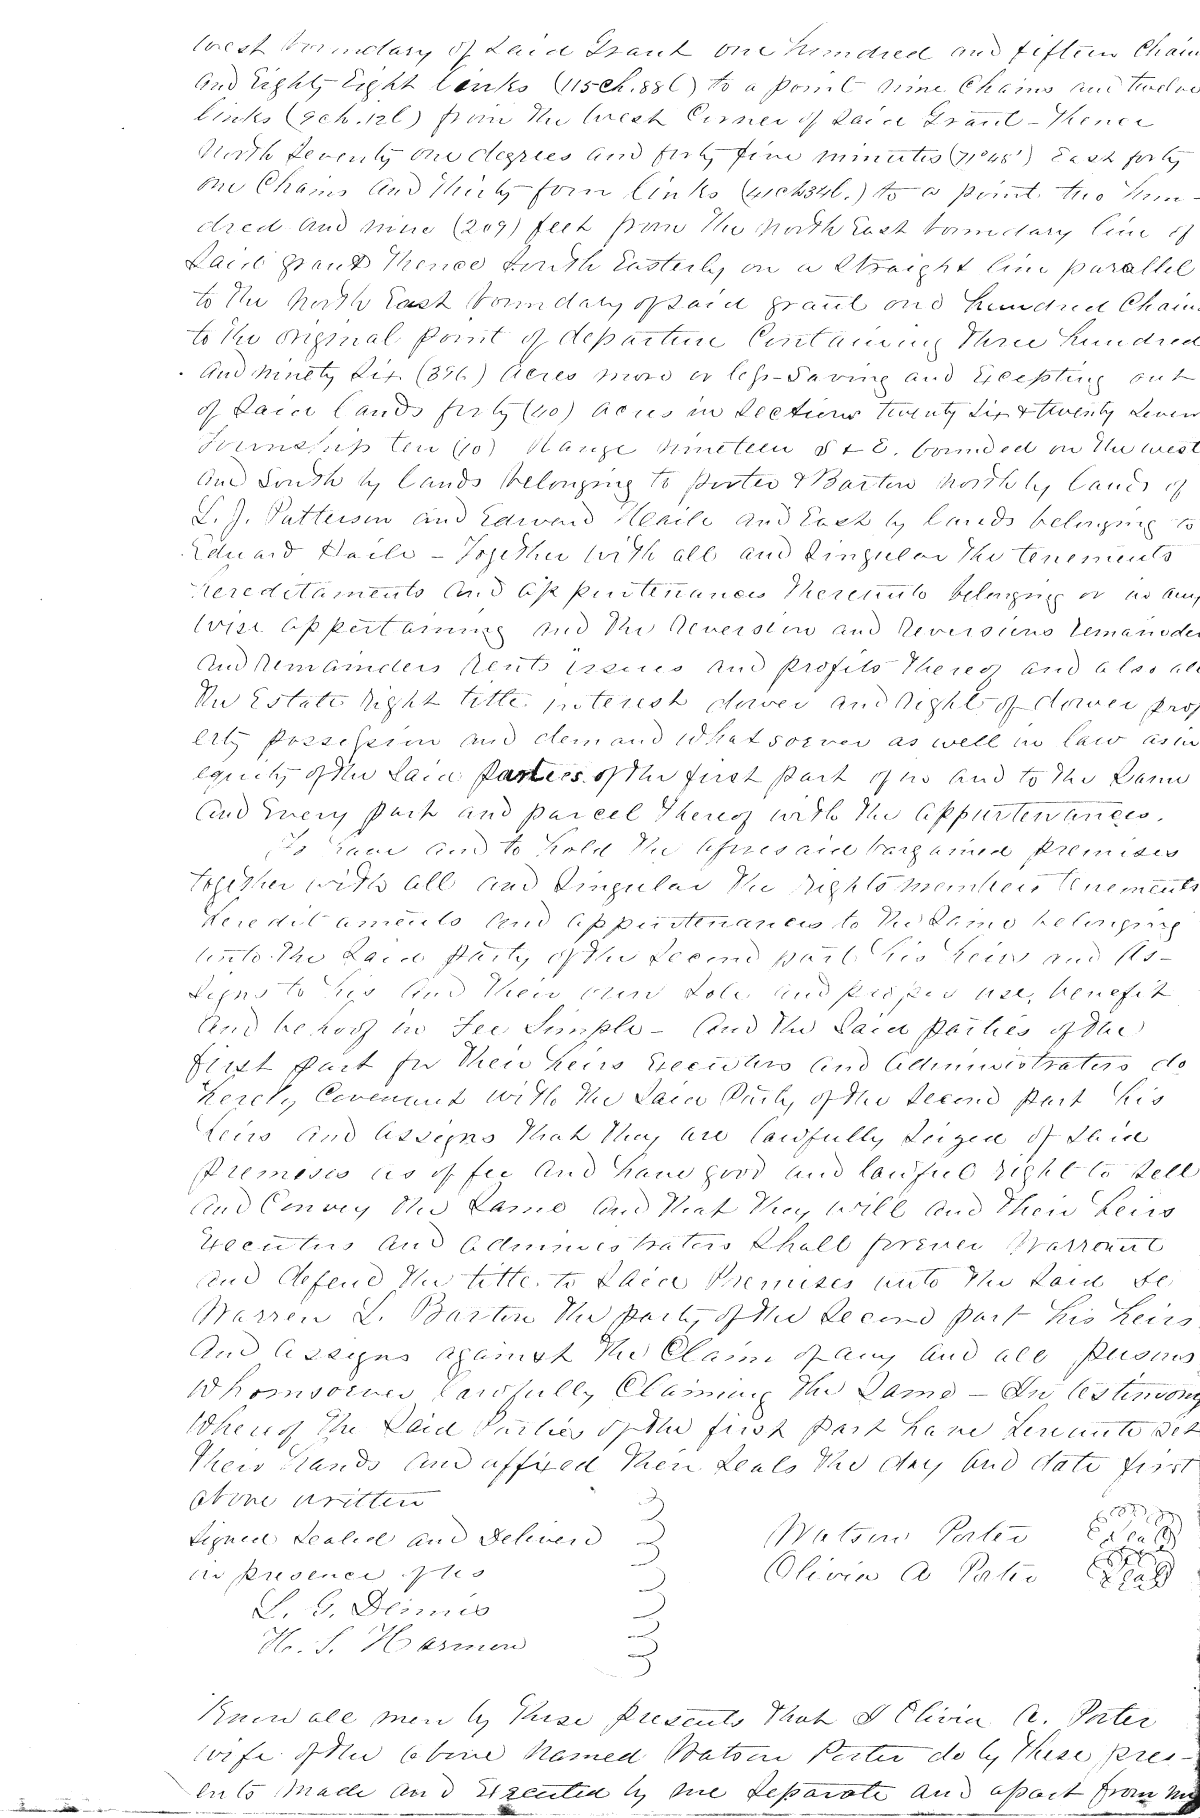 west boundary of said Grant one hundred and fifteen Chain
and Eighty Eight links (115ch.88l) to a point nine Chains and twelve
links (9ch.12l) from the West Corner of said Grant - Thence
North Seventy one degrees and forty five minutes (71°45') East forty
one Chains and Thirty four links (41ch34l.) to a point two hun-
dred and nine (209) feet from the North East boundary line of
Said grant Thence South Easterly on a Straight line parallel
to the North East boundary of said grant one hundred Chain
to the original point of departure Containing Three hundred
and ninety Six (396) acres more or less - Saving and Excepting out
of Said lands forty (40) acres in Sections twenty Six & twenty Seven
Township ten (10) Range nineteen S & E. bounded on the west
and South by lands belonging to porter & Barton north by lands of
L. J. Patterson and Edward Haile and East by lands belonging to
Eduard Haile - Together with all and Singular the tenements
hereditaments and appurtenances Thereunto belonging or in any
wise appertaining and the Reversion and Reversions Remainder
and Remainders Rents issues and profits Thereof and also all
the Estate Right title interest dower and Right of dower prop
erty possession and demand whatsoever as well in law as in
equity of the Said Parties of the first part of in and to the Same
and Every part and parcel Thereof with the appurtenances.
To have and to hold the aforesaid bargained premises
together with all and Singular the rights members tenements
hereditaments and appurtenances to the Same belonging
unto the Said Party of the Second part his heirs and As-
signs to his and Their own Sole and proper use, benefit
and behoof in Fee Simple - And the Said parties of the
first part for Their heirs Executors and administrators do
hereby Covenant with the Said Party of the Second part his
heirs and assigns that they are lawfully Seized of said
premises as of fee and have good and lawful right to Sell
and Convey the Same and that they will and Their heirs
Executors and administrators Shall forever Warrant
and defend the title to Said Premises unto the Said De
Warren L. Barton the party of the Second part his heirs
And assigns against the Claim of any and all persons
Whomsoever lawfully Claiming the Same - In testimony
Whereof the Said Parties of the first part have hereunto set
Their hands and affixed Their Seals the day and date first
above written
Signed Sealed and Delivered
in presence of us
Watson Porter Seal
Olivia A Porter Seal
L. G. Dennis
H. S. Harmon
Know all men by These presents that I Olivia A. Porter
wife of the above Named Watson Porter do by These pres-
ents made and Executed by me Separate and apart from my